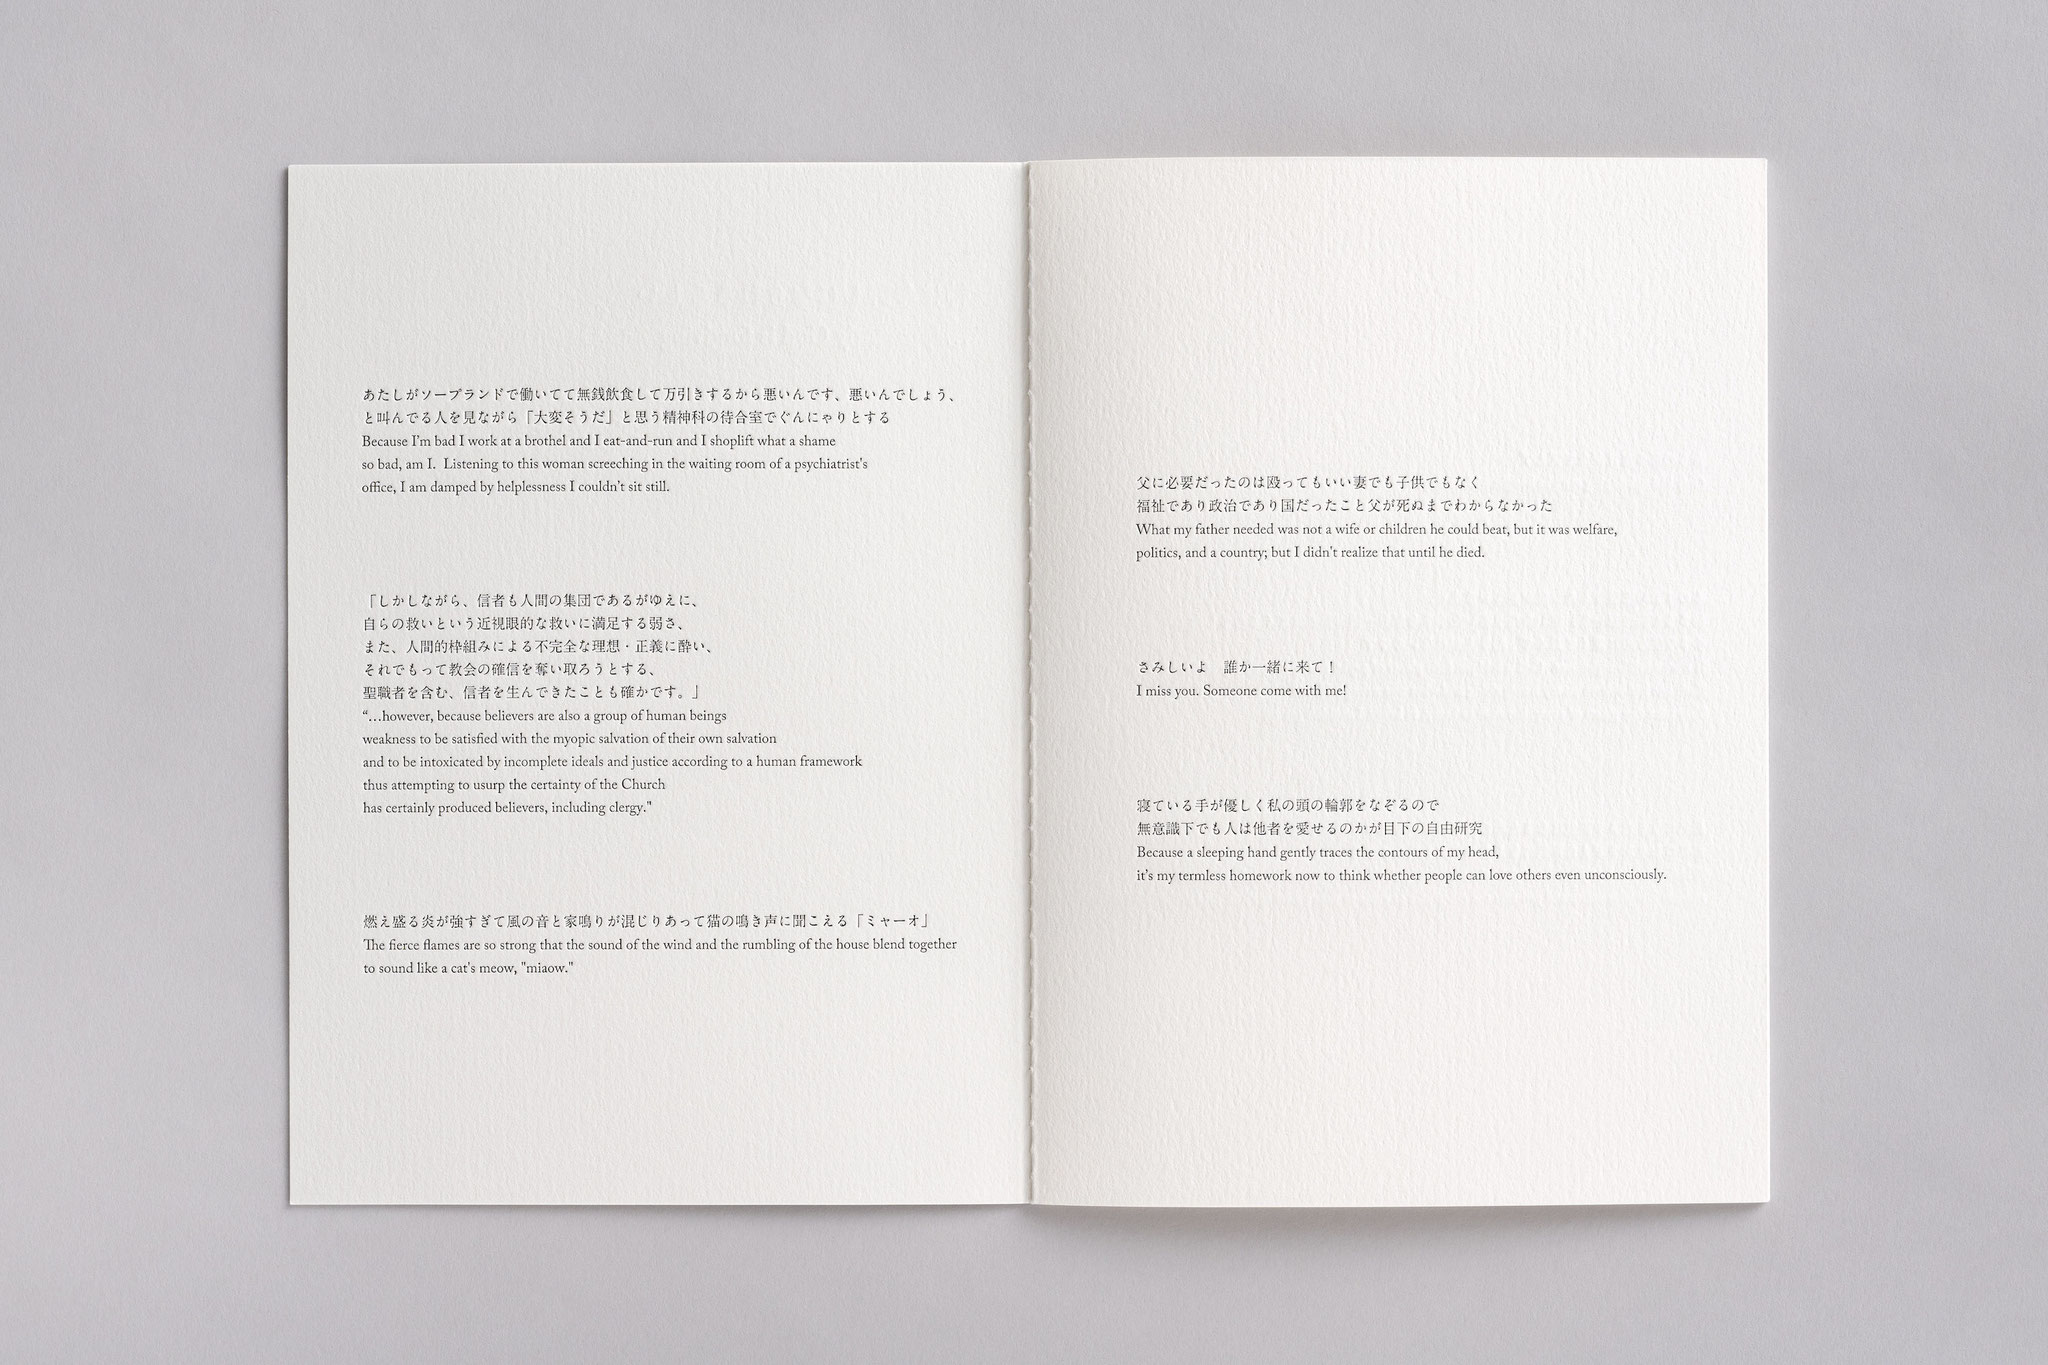 あたしがソープランドで働いてて無銭飲食して万引きするから悪いんです、悪いんでしょう、
と叫んでる人を見ながら「大変そうだ」と思う精神科の待合室でぐんにゃりとする
Because I'm bad I work at a brothel and I eat-and-run and I shoplift what a shame
so bad, am I.  Listening to this woman screeching in the waiting room of a psychiatrist's
office, I am damped by helplessness I couldn't sit still.
「しかしながら、信者も人間の集団であるがゆえに、
自らの救いという近視眼的な救いに満足する弱さ、
また、人間的枠組みによる不完全な理想・正義に酔い、
それでもって教会の確信を奪い取ろうとする、
聖職者を含む、信者を生んできたことも確かです。」
“…however, because believers are also a group of human beings
weakness to be satisfied with the myopic salvation of their own salvation
and to be intoxicated by incomplete ideals and justice according to a human framework
thus attempting to usurp the certainty of the Church
has certainly produced believers, including clergy."
燃え盛る炎が強すぎて風の音と家鳴りが混じりあって猫の鳴き声に聞こえる「ミャーオ」
The fierce flames are so strong that the sound of the wind and the rumbling of the house blend together
to sound like a cat's meow, "miaow."
父に必要だったのは殴ってもいい妻でも子供でもなく
福祉であり政治であり国だったこと父が死ぬまでわからなかった
What my father needed was not a wife or children he could beat, but it was welfare,
politics, and a country; but I didn't realize that until he died.
さみしいよ　誰か一緒に来て！
I miss you. Someone come with me!
寝ている手が優しく私の頭の輪郭をなぞるので
無意識下でも人は他者を愛せるのかが目下の自由研究
Because a sleeping hand gently traces the contours of my head,
it's my termless homework now to think whether people can love others even unconsciously.